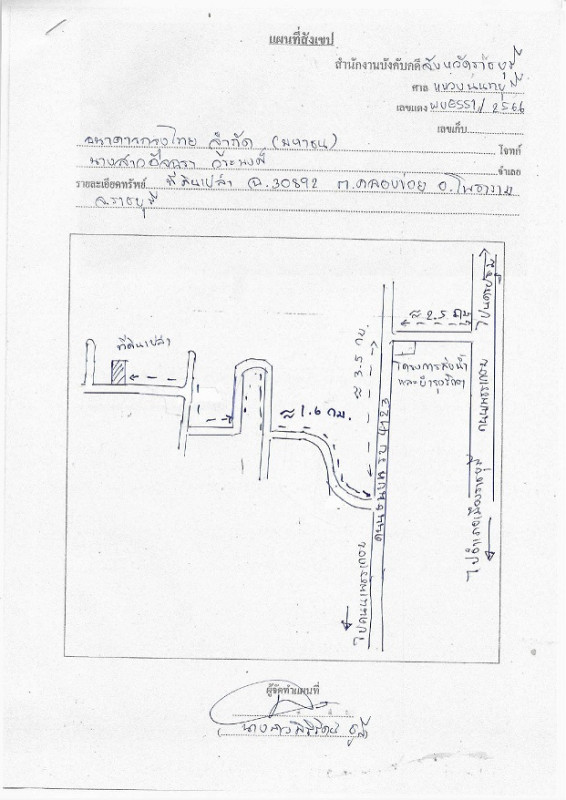 แผนที่สังเขป
สำนักงานบังคับคดีจังหวัดราชบุรี
ศาล แขวงนนทบุรี
เลขแดง ผบE551/2566
เลขเก็บ
ธนาคารกรุงไทย จำกัด (มหาชน) โจทก์
นางสาวอัจฉรา วีระพงษ์ จำเลย
รายละเอียดทรัพย์ ที่ดินเปล่า ฉ.30892 ต.คลองข่อย อ.โพธาราม
จ.ราชบุรี
ที่ดินเปล่า
≈ 1.6 กม.
≈ 3.5 กม.
≈ 2.5 กม
ถนนชนบท รบ 4123
ไปถนนเพชรเกษม
โครงการส่งน้ำ
และบำรุงรักษา
ถนนเพชรเกษม
ไปอำเภอเมืองราชบุรี
ไปนครปฐม
ผู้จัดทำแผนที่
นางสาว